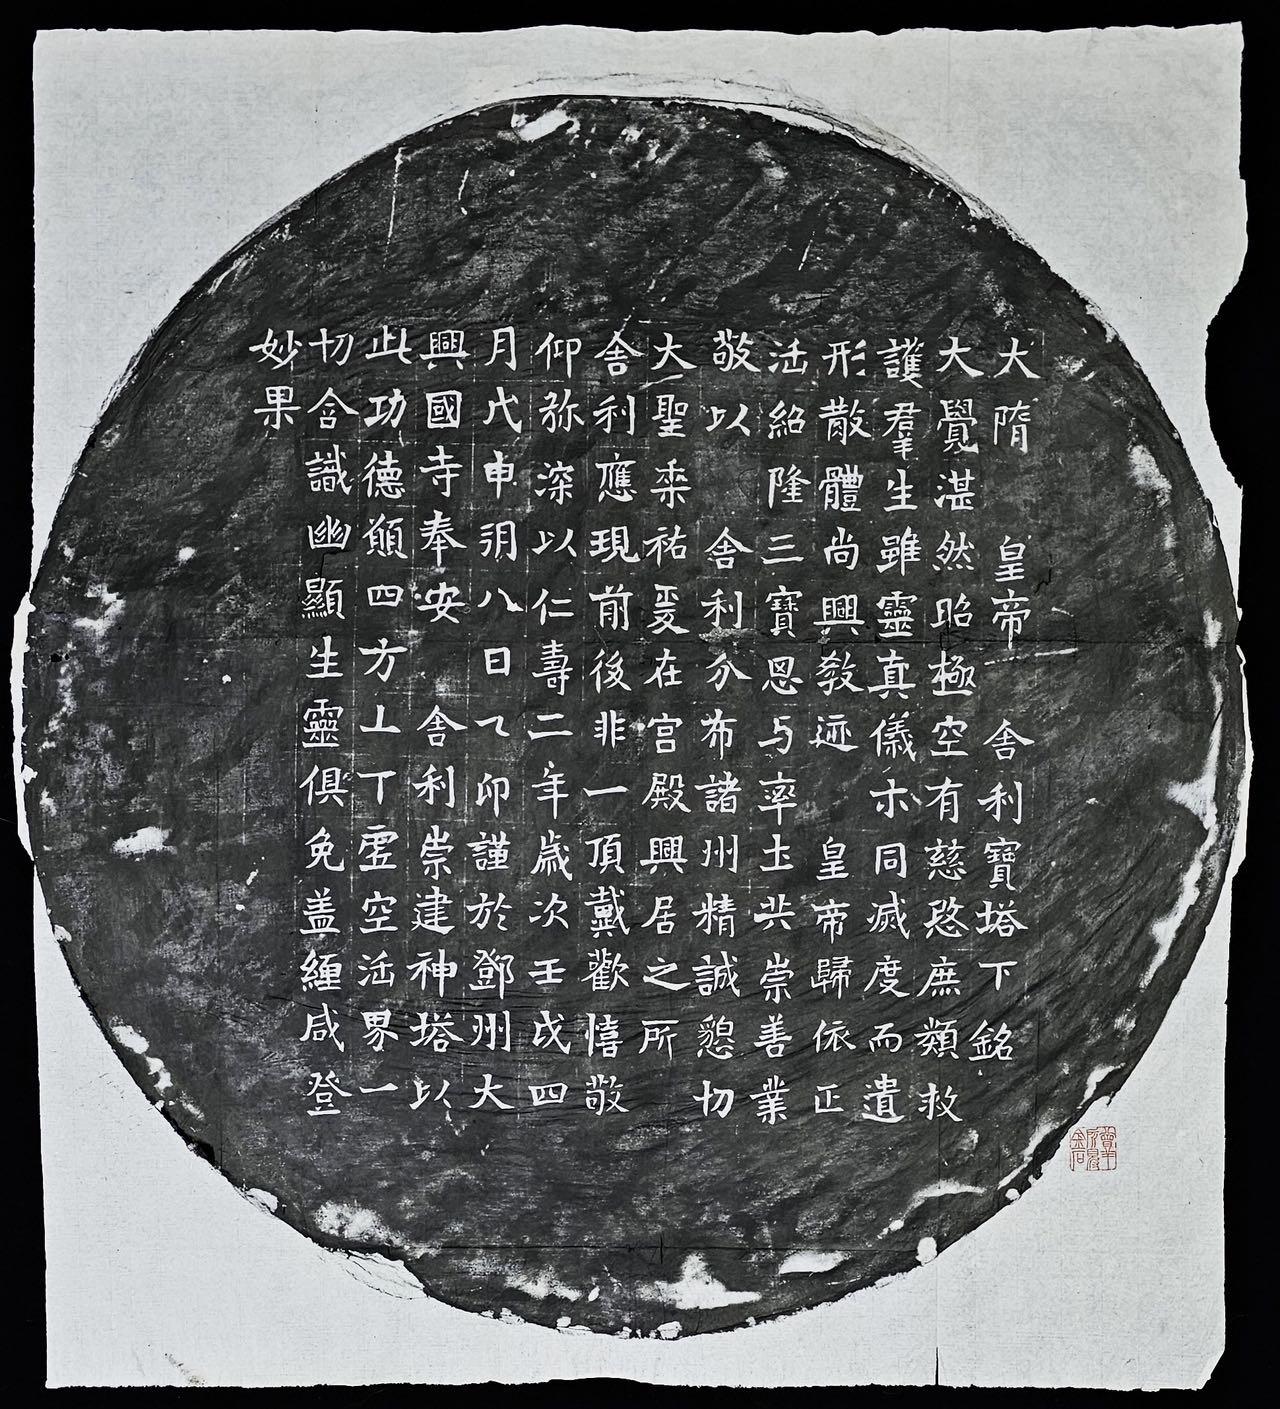 大隋皇帝舍利寶塔下銘
大覺湛然昭極空有慈愍庶類救
護羣生雖靈真儀示同滅度而遺
形散體尚興教迹皇帝歸依正
法紹隆三寶思与率土共崇善業
敬以舍利分布諸州精誠懇切
大聖垂祐爰在宮殿興居之所
舍利應現前後非一頂戴歡憘敬
仰弥深以仁壽二年歲次壬戌四
月戊申朔八日乙卯謹於鄧州大
興國寺奉安舍利崇建神塔以
此功德願四方上下虛空法界一
切含識幽顯生靈俱免盖纏咸登
妙果